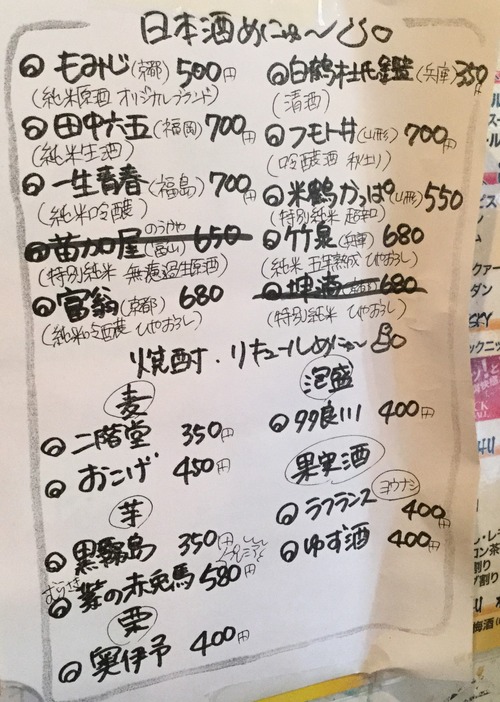 日本酒めにゅ〜
もみじ(京都) 500円
(純米原酒 オリジナルブランド)
田中六五(福岡) 700円
(純米生酒)
一生青春(福島) 700円
(純米吟醸)
苗加屋(富山) 650
のうかや
(特別純米 無濾過生原酒)
富翁(京都) 680
(純米吟醸 ひやおろし)
白鶴杜氏鑑(兵庫) 350円
(清酒)
フモト井(山形) 700円
(吟醸酒 秋出し)
米鶴かっぱ(山形) 550
(特別純米 超辛口)
竹泉(兵庫) 680
(純米 五年熟成 ひやおろし)
680
(特別純米 ひやおろし)
焼酎・リキュールめにゅ〜
麦
二階堂 350円
おこげ 450円
芋
黒霧島 350円
むらさき
紫の赤兎馬 580円
栗
奥伊予 400円
泡盛
多良川 400円
果実酒
ラフランス ヨウナシ
400円
ゆず酒 400円